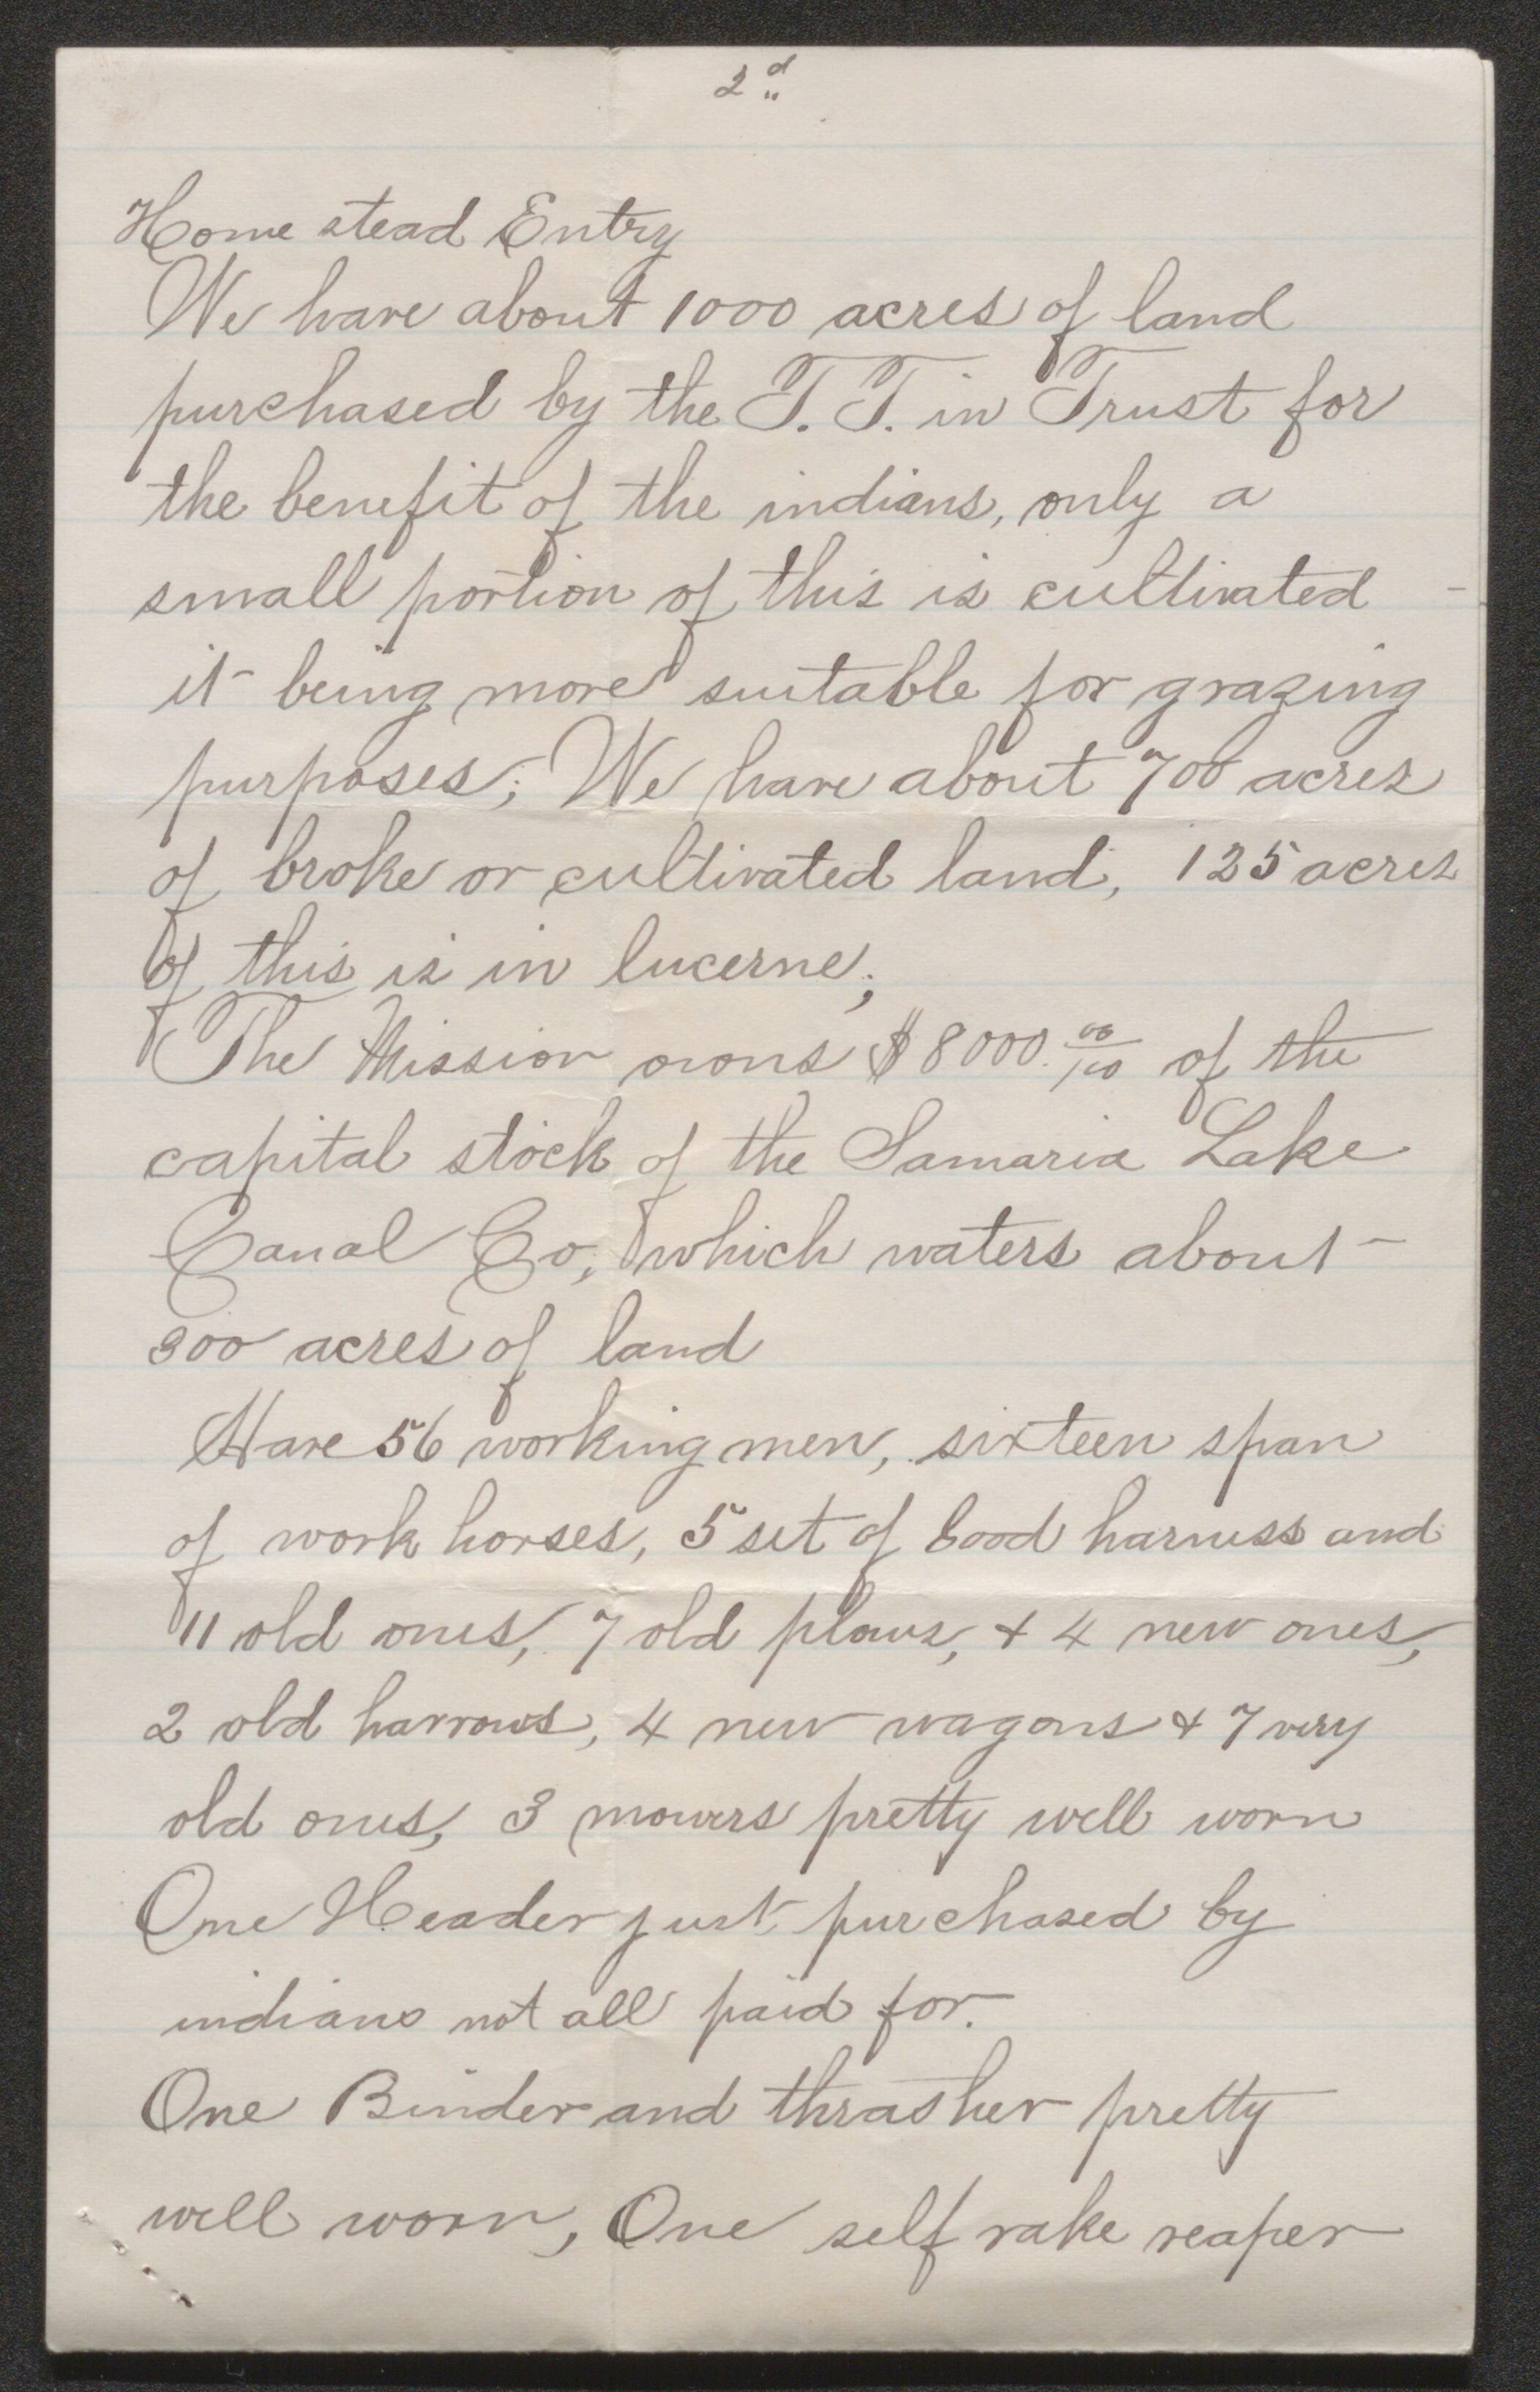 2d
Home stead Entry
We have about 1000 acres of land
purchased by the T. T. in Trust for
the benefit of the indians, only a
small portion of this is cultivated
it being more suitable for grazing
purposes; We have about 700 acres
of broke or cultivated land, 125 acres
of this is in lucerne;
The Mission owns $8000.00/100 of the
capital stock of the Samaria Lake
Canal Co, which waters about
300 acres of land
Have 56 working men, sixteen span
of work horses, 5 set of Good harness and
11 old ones, 7 old plows, + 4 new ones,
2 old harrows, 4 new wagons + 7 very
old ones, 3 mowers pretty well worn
One Header just purchased by
indians not all paid for.
One Binder and thrasher pretty
well worn, One self rake reaper